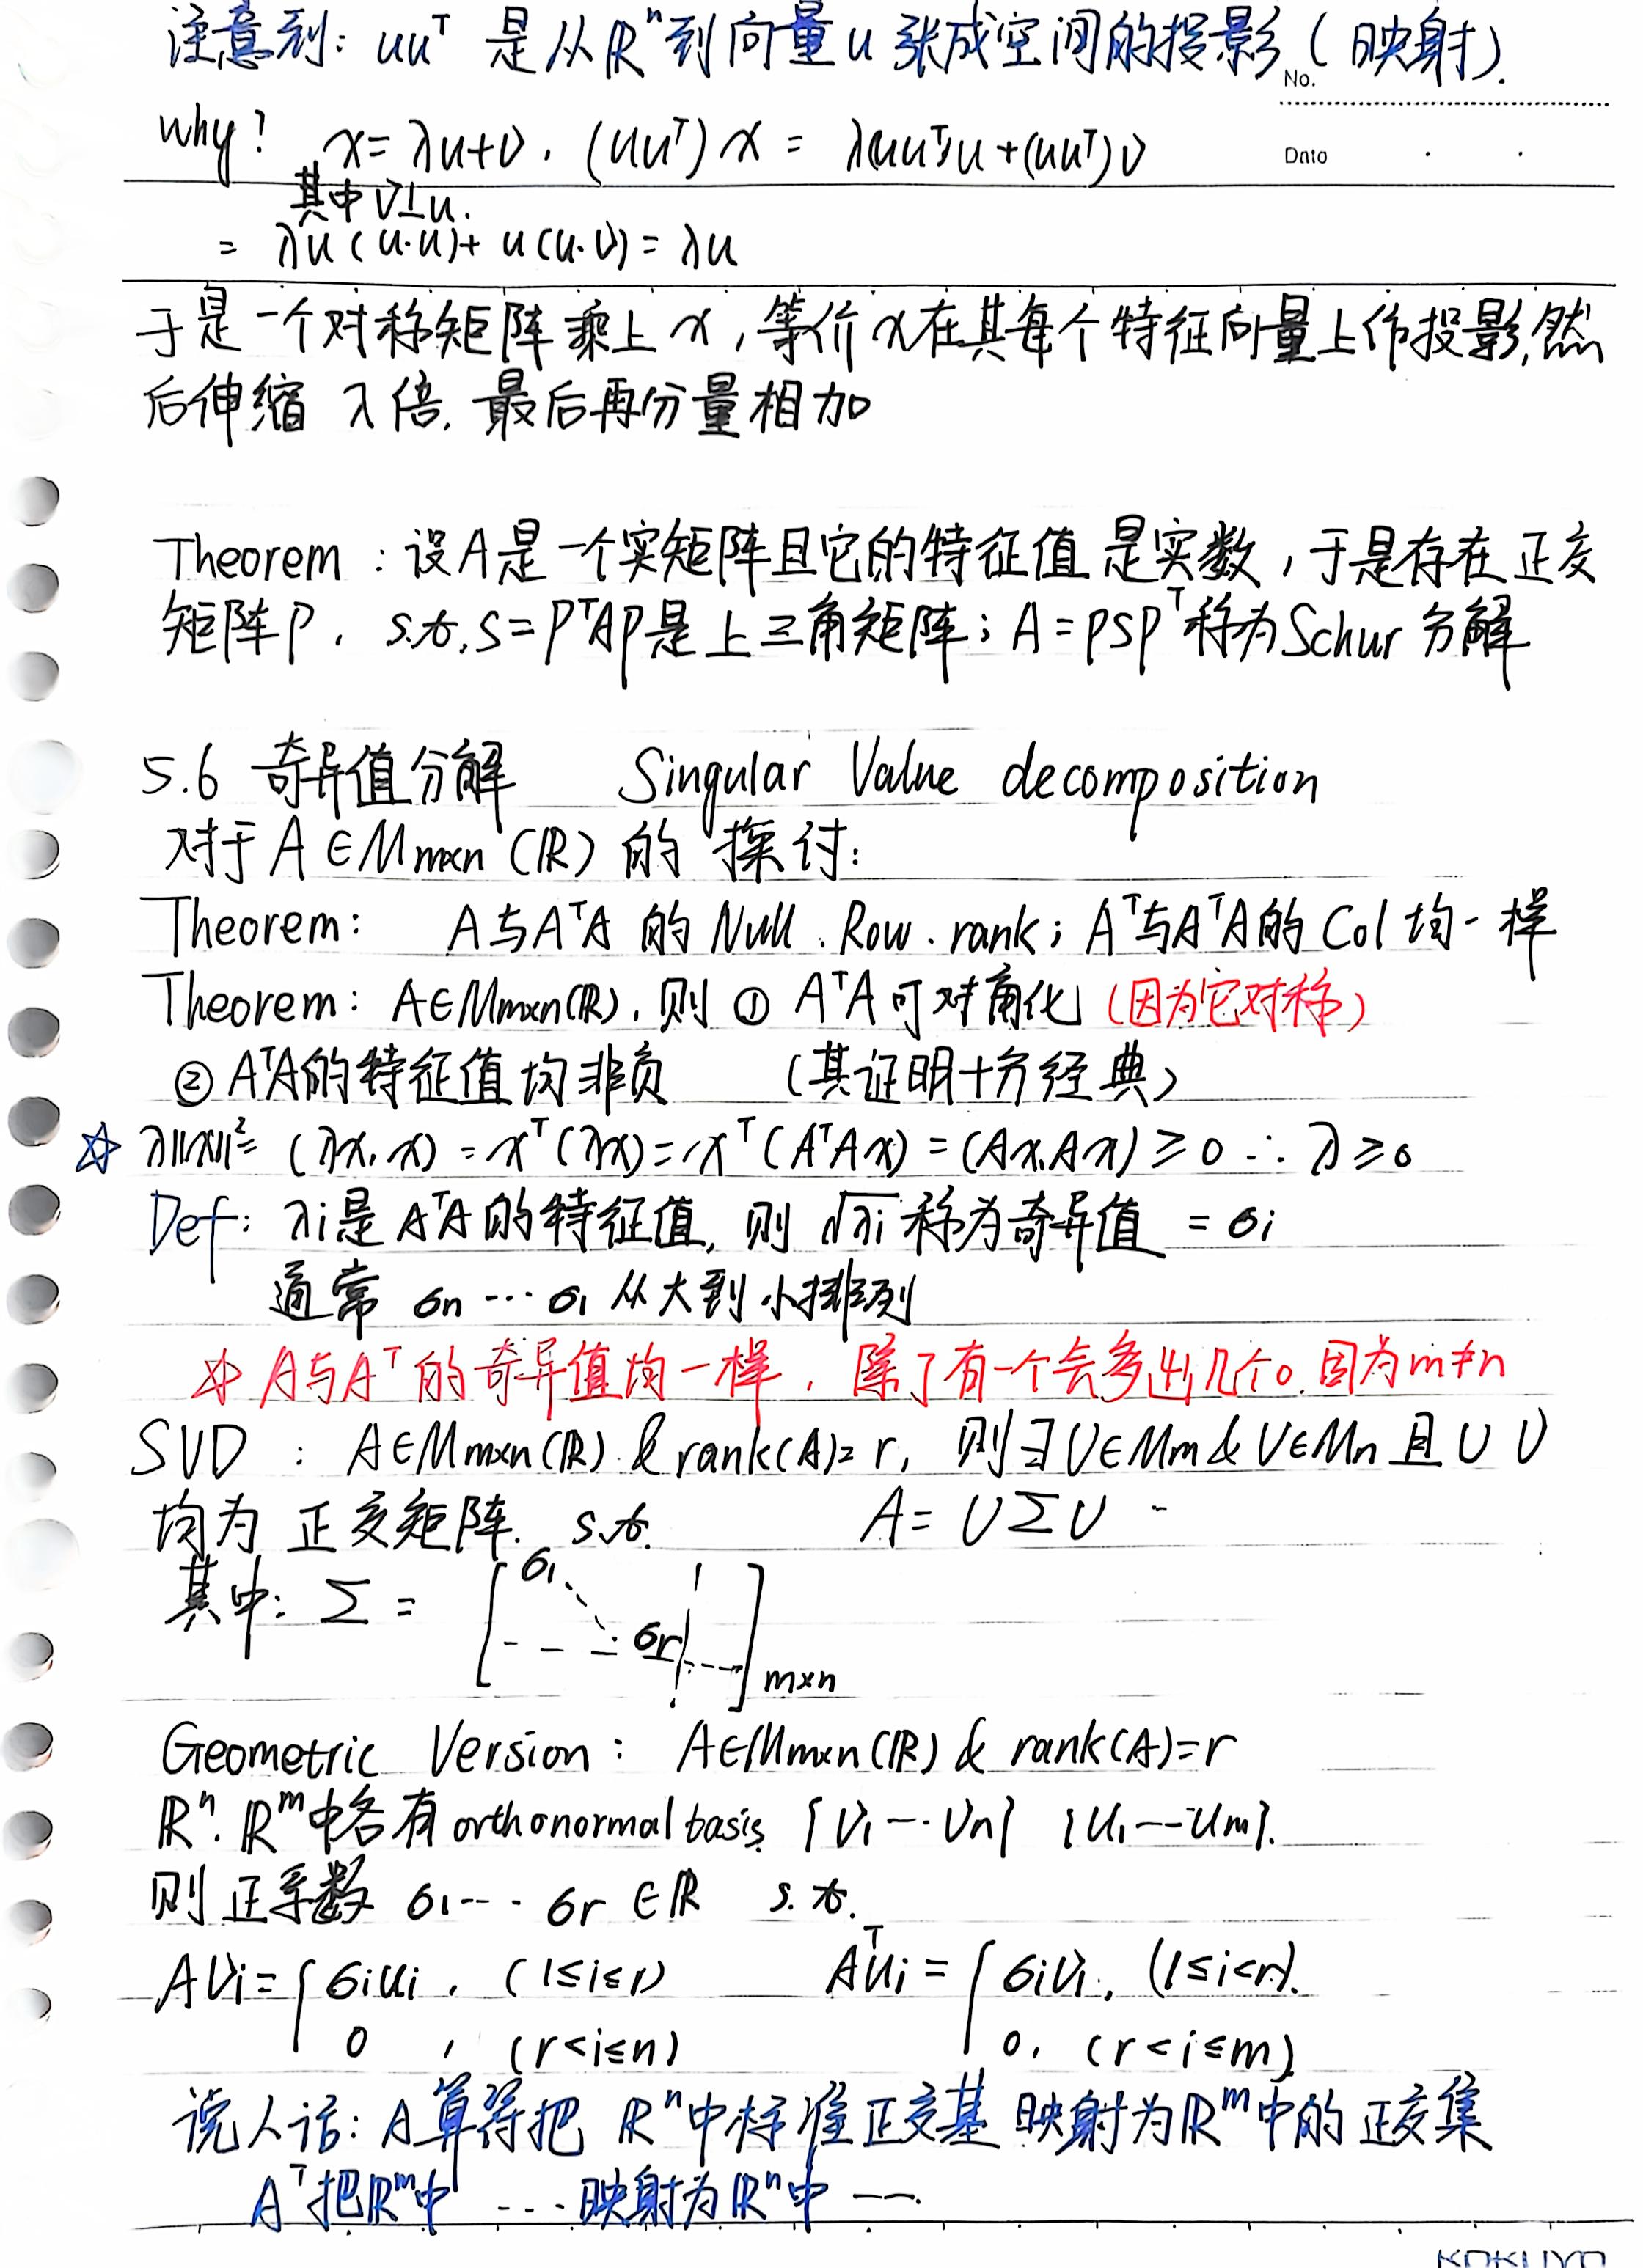 注意到: uuᵀ 是从 ℝⁿ到向量u 张成空间的投影 (映射).
No.
why? x = λu+v. (uuᵀ) x = λ(uuᵀ)u + (uuᵀ) v
Date
其中 v⊥u.
= λu (u·u) + u (u·v) = λu
于是一个对称矩阵乘上 x, 等价 x在其每个特征向量上作投影, 然
后伸缩 λ倍. 最后再分量相加
Theorem : 设A是一个实矩阵且它的特征值是实数, 于是存在正交
矩阵P. s.t. S = PᵀAP是上三角矩阵; A = PSPᵀ称为Schur 分解
5.6 奇异值分解 Singular Value decomposition
对于 A ∈ Mm×n (ℝ) 的 探讨:
Theorem: A与AᵀA 的 Null. Row. rank; Aᵀ与AᵀA的 Col 均一样
Theorem: A∈Mm×n(ℝ). 则 ① AᵀA可对角化 (因为它对称)
② AᵀA的特征值均非负 (其证明十分经典)
☆ λ||x||² = (λx, x) = xᵀ(λx) = xᵀ(AᵀAx) = (Ax, Ax) ≥ 0 ∴ λ ≥ 0
Def: λi是 AᵀA 的特征值, 则 √λi 称为奇异值 = σi
通常 σn ··· σ1 从大到小排列
☆ A与Aᵀ 的奇异值均一样, 除了有一个会多出几个0. 因为m≠n
SVD : A∈Mm×n(ℝ) & rank(A)= r, 则∃U∈Mm & V∈Mn 且 U V
均为 正交矩阵. s.t. A = UΣV
其中: Σ = [ σ1 ⋱ σr ] m×n
Geometric Version : A∈Mm×n(ℝ) & rank(A)=r
ℝⁿ. ℝᵐ中各有 orthonormal basis {v1 --- vn} {u1 --- um}.
则正系数 σ1--- σr ∈ℝ s.t.
Avi = { σiui , (1≤i≤r) Aᵀui = { σivi, (1≤i<r).
0 , (r<i≤n) 0, (r<i≤m)
说人话: A算得把 ℝⁿ中标准正交基 映射为ℝᵐ中的正交集
Aᵀ把ℝᵐ中 --- 映射为ℝⁿ中 ---